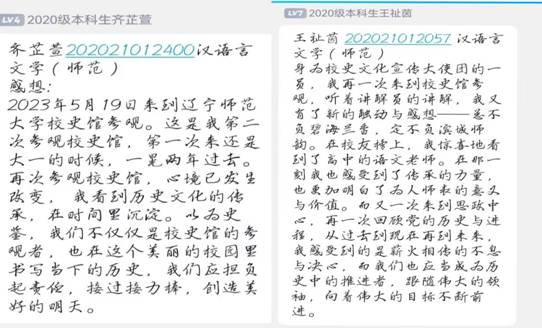 LV4 2020级本科生齐芷萱
齐芷萱202021012400汉语言
文学(师范)
感想:
2023年5月19日来到辽宁师范
大学校史馆参观。这是我第二
次参观校史馆,第一次来还是
大一的时候,一晃两年过去。
再次参观校史馆,心境已发生
改变,我看到历史文化的传
承,在时间里沉淀。以为史
鉴,我们不仅仅是校史馆的参
观者,也在这个美丽的校园里
书写当下的历史,我们应担负
起责任,接过接力棒,创造美
好的明天。
LV7 2020级本科生王祉茵
王祉茵 202021012057 汉语言
文学(师范)
身为校史文化宣传大使团的一
员,我再一次来到校史馆参
观,听着讲解员的讲解,我又
有了新的触动与感想——总不
负碧海兰香,定不负滨城师
韵。在校友榜上,我惊喜地看
到了高中的语文老师。在那一
刻我也感受到了传承的力量,
也更加明白了为人师表的意义
与价值。而又一次来到思政中
心,再一次回顾党的历史与进
程,从过去到现在再到未来,
我感受到的是薪火相传的不息
与决心,而我们也应当成为历
史中的推进者,跟随伟大的领
袖,向着伟大的目标不断前
进。